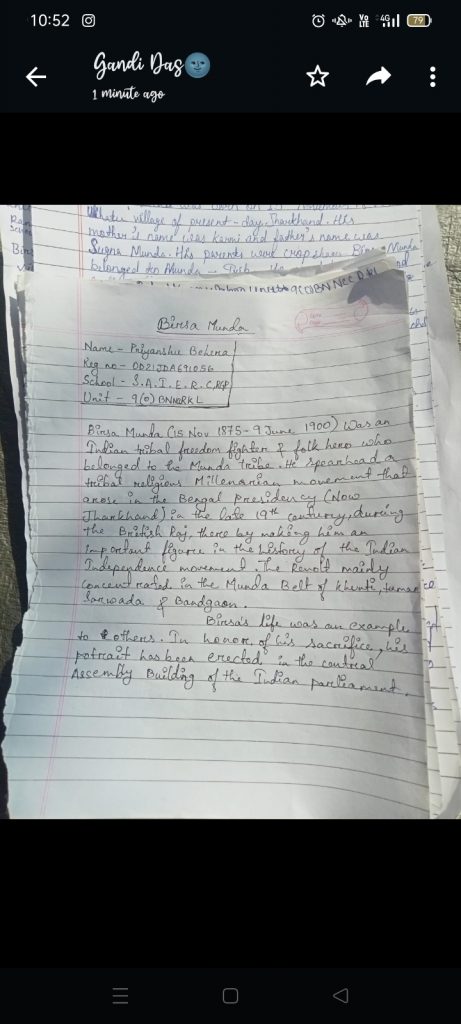 10:52
Vo LTE 4G 79
Gandi Das🌚
1 minute ago
village of present-day Jharkhand. His
mother's name was Karmi and father's name was
Sugna Munda. His parents were crop Munda
belonged to Munda
Birsa Munda
Name - Priyanshu Behera
Reg no - OD21JDA691056
School - S.A.I.E.R.C,RGP
Unit - 9(O) BNNCRKL
Birsa Munda (15 Nov 1875 - 9 June 1900) was an
Indian tribal freedom fighter & folk hero who
belonged to the Munda tribe. He spearhead a
tribal religious Millenarian movement that
arose in the Bengal Presidency (Now
Jharkhand) in the late 19th century, during
the British Raj, there by making him an
important figure in the history of the Indian
Independence movement. The Revolt mainly
concentrated in the Munda Belt of Khunti, tamar
Sarwada & Bandgaon.
Birsa's life was an example
to others. In honor of his sacrifice, his
potrait has been erected in the central
Assembly Building of the Indian parliament.